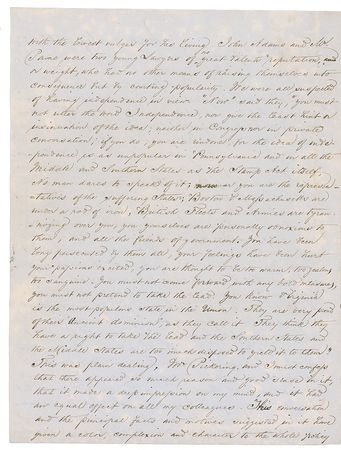 with the lowest vulgar for his living. John Adams and Mr.
Paine were two young Lawyers of no great talents, reputation, and
or weight, who had no other means of raising themselves into
consequence but by courting popularity. We were all suspected
of having independence in view. Now said they, you must
not utter the word Independence, nor give the least hint or
insinuation of the idea; neither in Congress nor in private
conversation; if you do, you are undone; for the idea of inde-
pendence is as unpopular in Pennsylvania and in all the
Middle and Southern States as the Stamp Act itself.
No man dares to speak of it; you are the represen-
tatives of the suffering State; Boston & Massachusetts are
under a rod of iron, British Fleets and Armies are tyran-
nizing over you, you yourselves are personally obnoxious to
them, and all the friends of government. You have been
long persecuted by them all; your feelings have been hurt
your passions excited; you are thought to be too warm, too zealous
too sanguine. You must not come forward with any bold measures,
you must not pretend to take the lead. You know Virginia
is the most populous state in the Union. They are very proud
of their Ancient dominion, as they call it. They think they
have a right to take the lead and the Southern States and
the Middle States are too much disposed to yield it to them.
This was plain dealing, Mr. Pickering, and I must confess
that there appeared so much reason and good sense in it,
that it made a deep impression on my mind and it had
an equal effect on all my colleagues. This conversation
and the principal facts and motives suggested in it have
given a color, complexion and character to the whole policy